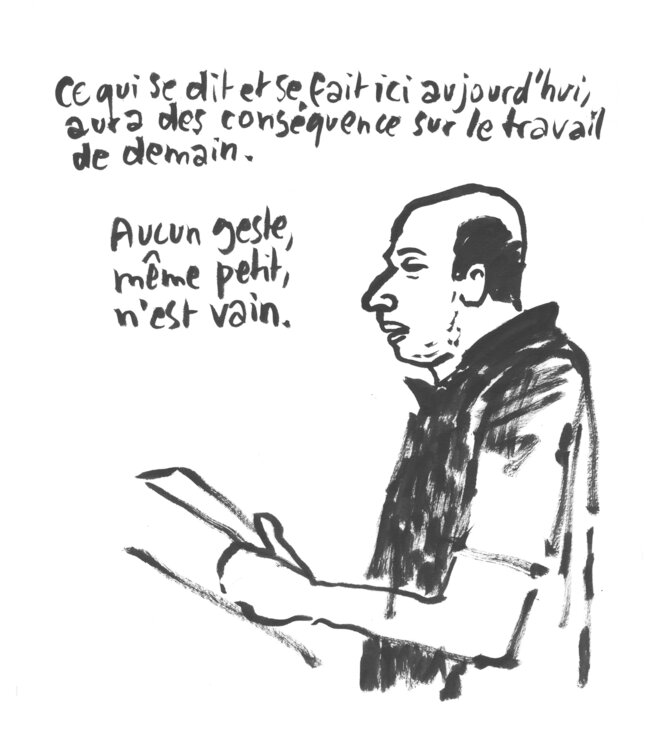 Ce qui se dit et se fait ici aujourd'hui,
aura des conséquence sur le travail
de demain.
Aucun geste,
même petit,
n'est vain.